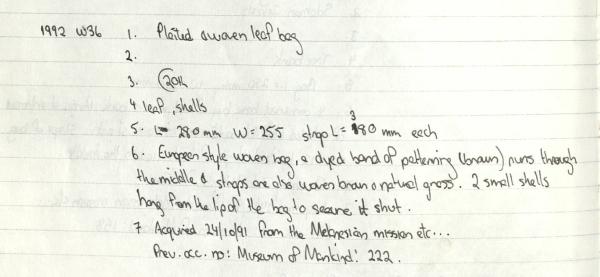 1992 W36 1. Plaited & woven leaf bag
2.
3. 20th
4 leaf, shells
5. L= 280 mm W = 255 straps L = 380 mm each
6. European style woven bag, a dyed band of patterning (brown) runs through
the middle & straps are also woven brown & natural grass. 2 small shells
hang from the lip of the bag to secure it shut.
7 Acquired 24/10/91 from the Melanesian mission etc...
Prev. acc. no: Museum of Mankind: 222.